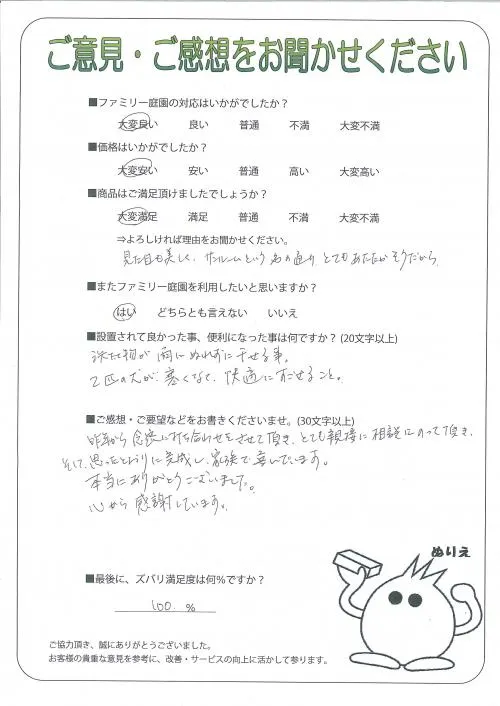 ご意見・ご感想をお聞かせください
■ファミリー庭園の対応はいかがでしたか？
大変良い 良い 普通 不満 大変不満
■価格はいかがでしたか？
大変安い 安い 普通 高い 大変高い
■商品はご満足頂けましたでしょうか？
大変満足 満足 普通 不満 大変不満
⇒よろしければ理由をお聞かせください。
見た目も美しく、サンルームという名の通り、とてもあたたかそうだから。
■またファミリー庭園を利用したいと思いますか？
はい どちらとも言えない いいえ
■設置されて良かった事、便利になった事は何ですか？(20文字以上)
洗たく物が雨にぬれずに干せる事。
2匹の犬が、寒くなく、快適にすごせること。
■ご感想・ご要望などをお書きくださいませ。(30文字以上)
昨年から念密に打ち合わせをさせて頂き、とても親接に相談にのって頂き、
そして、思ったとおりに完成し、家族で喜んでいます。
本当にありがとうございました。
心から感謝しています。
ぬりえ
■最後に、ズバリ満足度は何％ですか？
100. ％
ご協力頂き、誠にありがとうございました。
お客様の貴重な意見を参考に、改善・サービスの向上に活かして参ります。